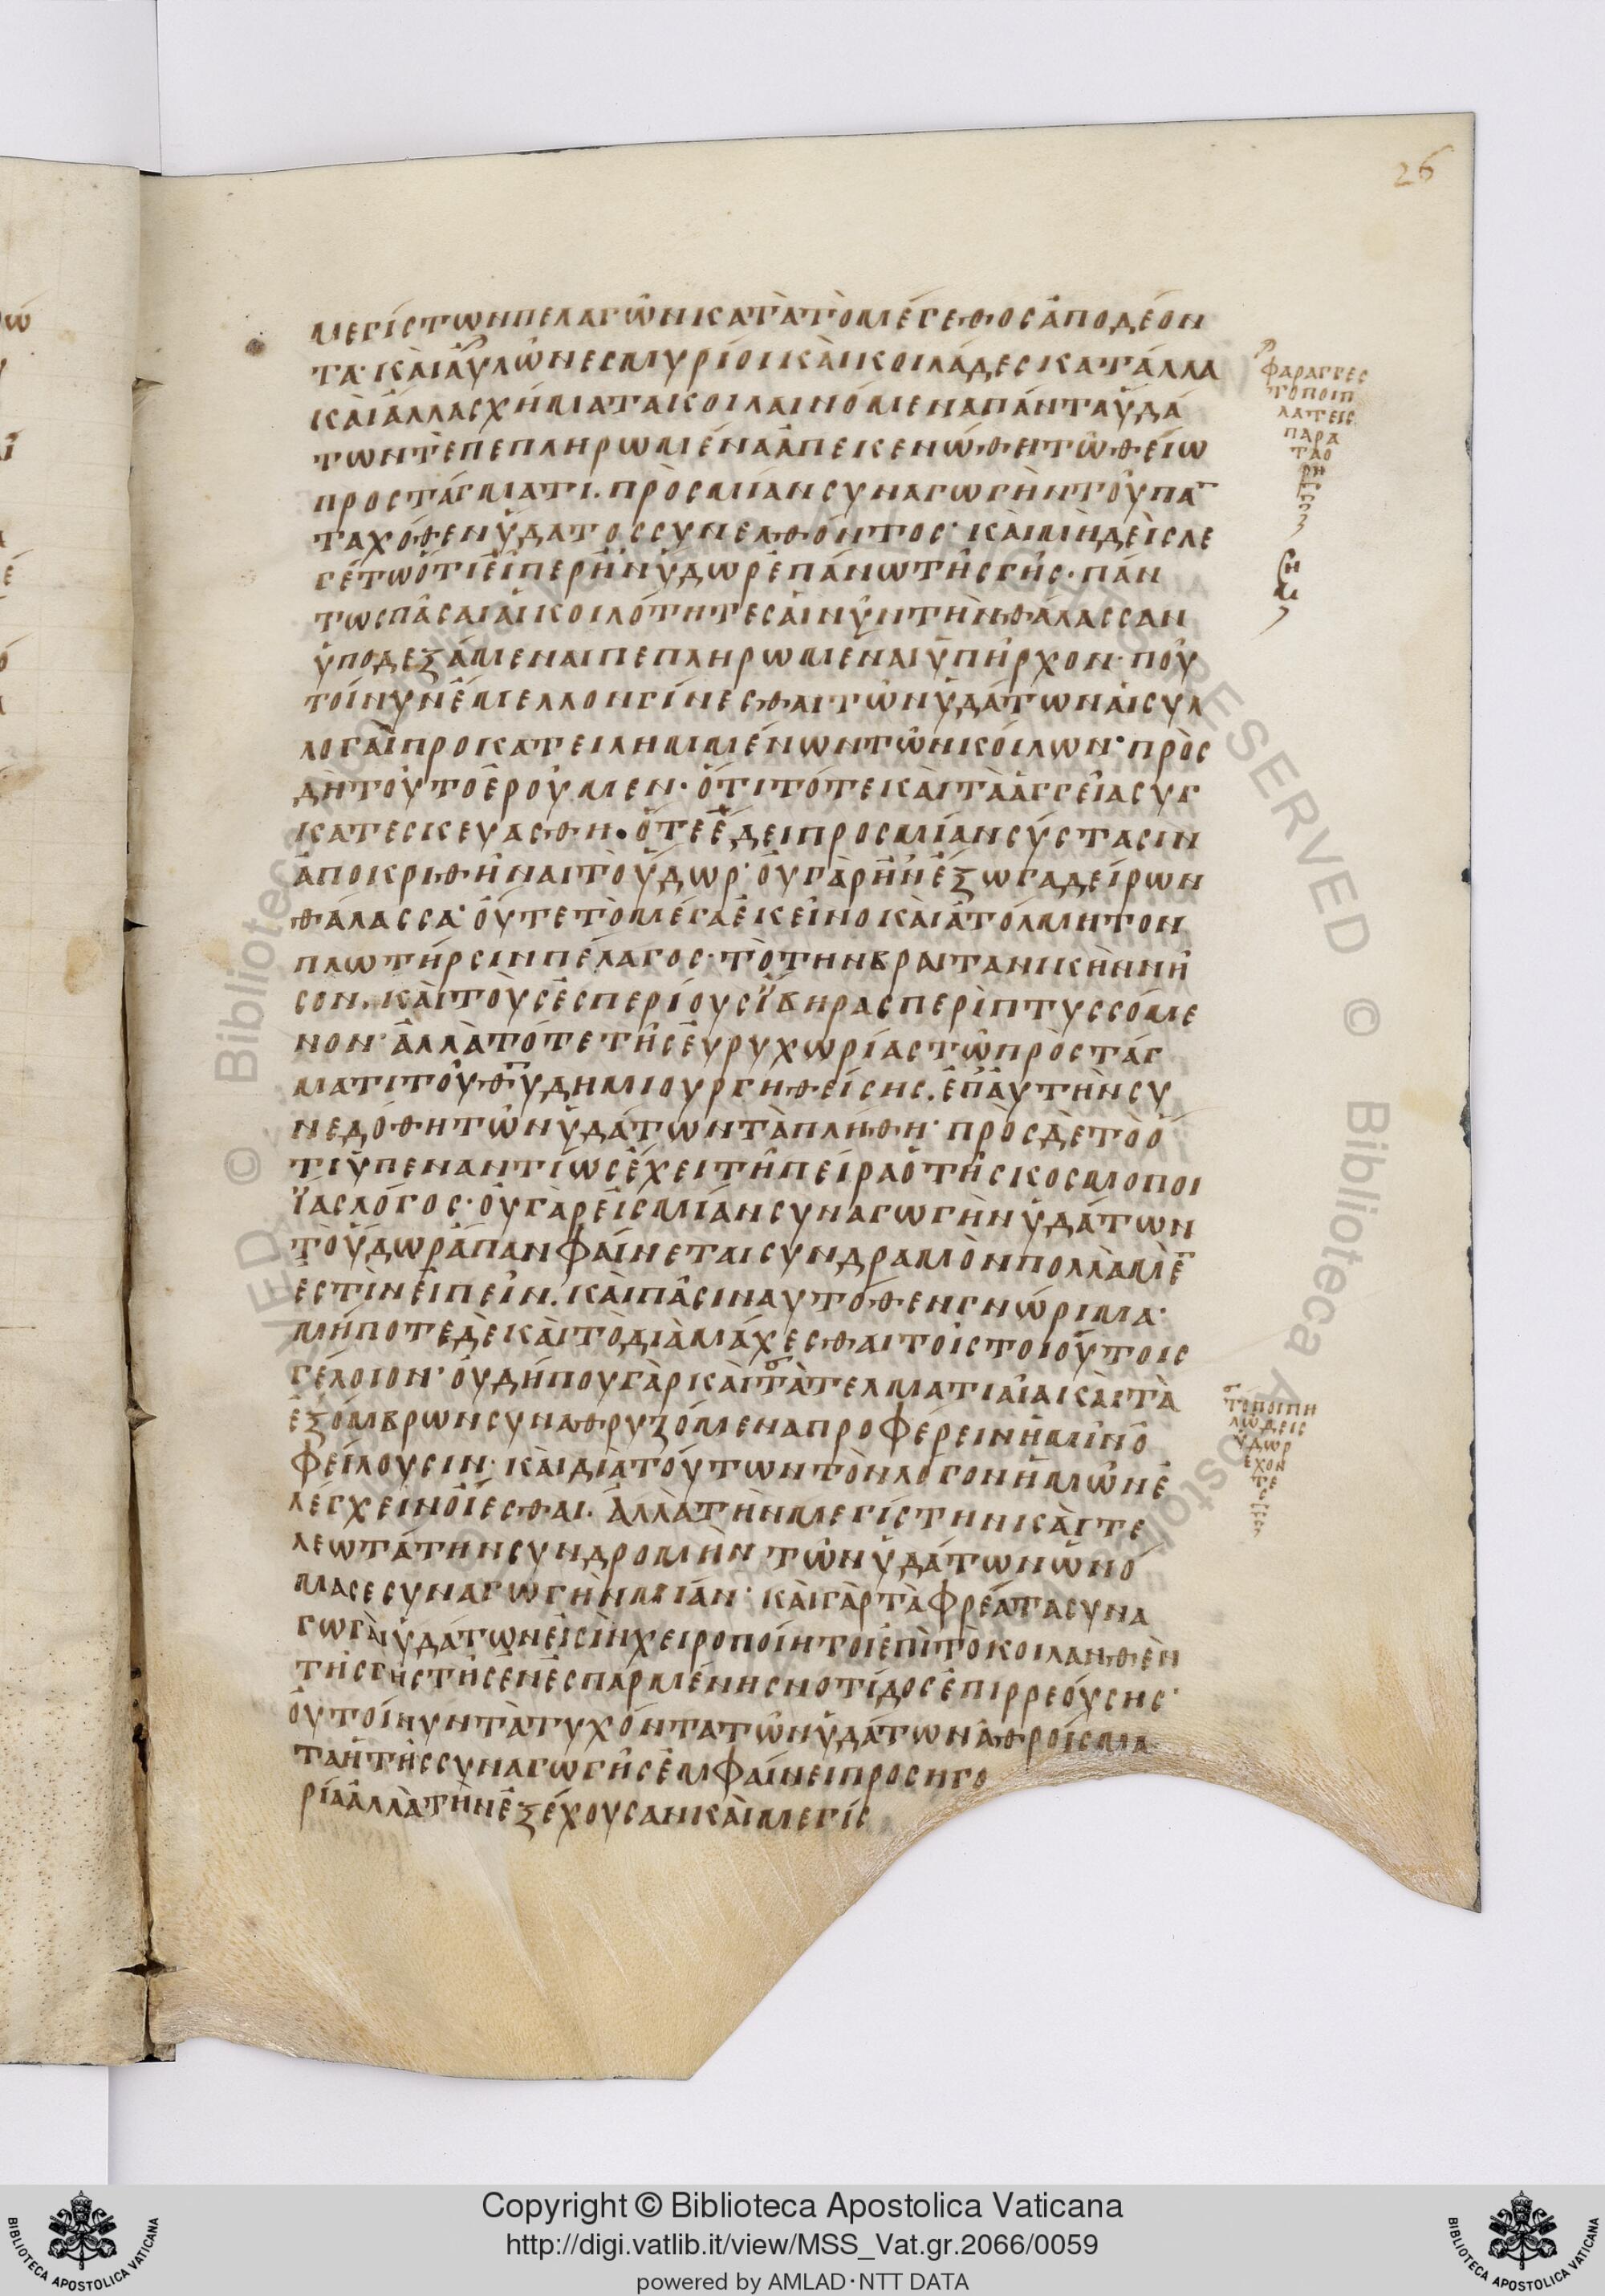 26
μεγίστων πελαγῶν κατὰ τὸ μέγεθος ἀποδέον
τα· καὶ αὐλῶνες μυρίοι καὶ κοιλάδες κατ' ἄλλα
καὶ ἄλλα σχήματα κοιλαινόμενα πάντα ὑδά
των τὲ πεπληρωμένα ἀπεικενώθεν τῶ θείω
προστάγματι. πρὸς μίαν συναγωγὴν τοῦ πα̅
ταχόθεν ὕδατος συνελθόντος· καὶ μὴδεὶς λε
γέτω ὅτι εἰπερ ἦν ὕδωρ ἐπάνω τῆς γῆς· πάν
τως πᾶσαι αἱ κοιλότητες αἱ νῦν τὴν θάλασσαν
ὑποδεξάμεναι πεπληρωμεναι ὑπῆρχον· ποῦ
τοίνυν ἔμελλον γίνεσθαι τῶν ὑδάτων αἱ συλ
λογαὶ προκατειλημμένων τῶν κοίλων· πρὸς
δὴ τοῦτο ἐροῦμεν· ὅτι τότε καὶ τὰ ἀγγεῖα συγ
κατεσκευασθη· ὅτε ἔδει προς μίαν σύστασιν
ἀποκριθῆναι τὸ ὕδωρ· οὐ γὰρ ἦν ἔξω γαδείρων
θάλασσα· οὔτε τὸ μέγα ἐκεῖνο καὶ ἀτόλμητον
πλωτήρσιν πέλαγος· τὸ τὴν βραιτανικὴν νῆ
σον. καὶ τοὺς ἑσπερίους ἴβηρας περὶπτυσσόμε
νον· ἀλλὰ τότε τῆς εὐρυχωρίας τῶ πρὸςτάγ
ματι τοῦ θ̅υ̅ δημιουργηθείσης. ἐπ' αὐτὴν συ
νεδόθη τῶν ὑδάτων τὰ πλήθη· πρὸς δὲ τὸ ὅ
τι ὑπεναντίως ἔχει τῆ πείρα ὁ τῆς κοσμοποι
ΐας λόγος· οὐ γὰρ εἰς μίαν συναγωγὴν ὑδάτων
τὸ ὕδωρ ἅπαν φαίνεται συνδραμὸν πολλὰ μὲ̅
ἐστὶν εἰπεῖν. καὶ πᾶσιν αυτόθεν γνώριμα·
μήποτε δὲ καὶ τὸ διὰμάχεσθαι τοῖς τοιούτοις
γέλοιον· οὐ δήπου γὰρ καὶ τὰ τελματιαῖα καὶ τὰ
ἐξ ὄμβρων συναθρυζόμενα προφέρειν ἡμῖν ὀ
φείλουσιν· καὶ διὰ τούτων τὸν λόγον ἡμῶν ἐ
λέγχειν οἴεσθαι. ἀλλὰ τὴν μεγίστην καὶ τε
λεωτάτην συνδρομὴν τῶν ὑδάτων ὠνό
μασε συναγωγὴν μίαν· καὶ γὰρ τὰ φρέατα συνα
γωγαὶ ὑδάτων εἰσὶν χειροποίητοι ἐπὶ τὸ κοιλανθὲν
τῆς γῆς τῆς ἐνεσπαρμένης νοτίδος ἐπιρρεούσης·
οὐ τοίνυν τὰ τυχόντα τῶν ὑδάτων ἀθροίσμα
τα ἡ τῆς συναγωγῆς ἐμφαίνει προσηγο
ρία ἀλλὰ τὴν ἐξέχουσαν καὶ μεγίς
φαραγγες
τοποι π
λατεις
παρα
τα ο
ρη
ση
με
τόποι πη
λώδεις
ὕδωρ
ἔχον
τε
ς